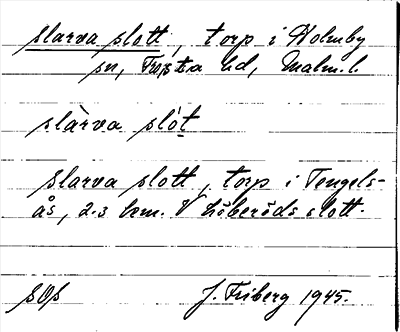 slarva slott, torp i Holmby
sn, Frosta hd, Malm. l.
slàrva slót
slarva slott, torp i Tengels-
ås, 2-3 km. V höberöds slott.
SOS J. Friberg 1945.